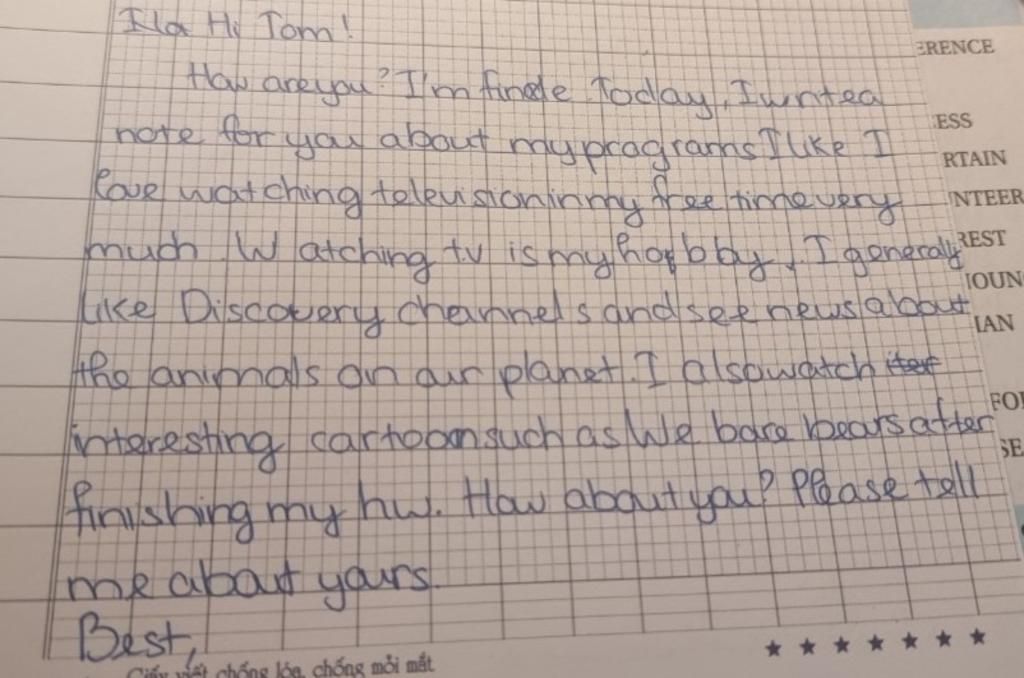 Hi Tom!
How are you? I'm fine Today, I write a
note for you about my programs I like I
love watching television in my free time very
much. Watching tv is my hobby, I generally
like Discovery channels and see news about
the animals on our planet. I also watch
interesting cartoon such as We bare bears after
finishing my hw. How about you? Please tell
me about yours.
Best,
Giấy viết chống lóa, chống mỏi mắt
★ ★ ★ ★ ★ ★ ★
ERENCE
ESS
RTAIN
NTEER
REST
IOUN
IAN
FOR
SE